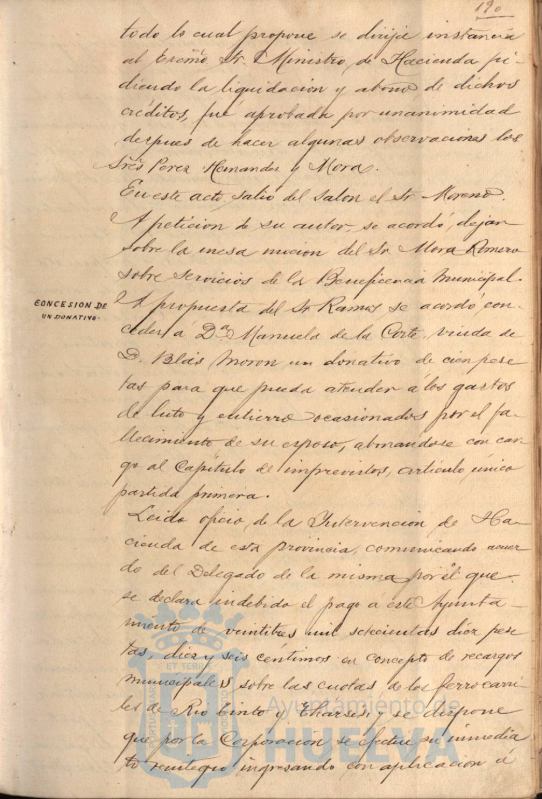 190
todo lo cual propone se dirija instancia
al Excmo Sr. Ministro de Hacienda pi-
diendo la liquidacion y abono de dichos
créditos, fué aprobada por unanimidad
despues de hacer algunas observaciones los
Sres Perez Hernandez y Mora.
En este acto, salió del salon el Sr. Moreno.
A peticion de su autor, se acordó, dejar
sobre la mesa mocion del Sr. Mora Romero
sobre servicios de la Beneficencia Municipal.
CONCESION DE
UN DONATIVO.
A propuesta del Sr Ramos se acordó con-
ceder, á Dª Manuela de la Corte, viuda de
D. Blás Moron un donativo de cien pese-
tas para que pueda atender a los gastos
de luto y entierro ocasionados por el fa-
llecimiento de su esposo, abonandose con car-
go al Capítulo de imprevistos, artículo único
partida primera.
Leido oficio, de la Intervencion de Ha-
cienda de esta provincia, comunicando acuer-
do del Delegado de la misma por el que
se declara indebido el pago á este Ayunta-
miento de veintitres mil setecientas diez pese-
tas, diez y seis céntimos en concepto de recargos
municipales sobre las cuotas, de los ferrocarri-
les de Rio tinto y Tharsis, y se dispone
que por la Corporacion se efectue su inmedia-
to reintegro ingresando con aplicacion á
Ayuntamiento de
HUELVA